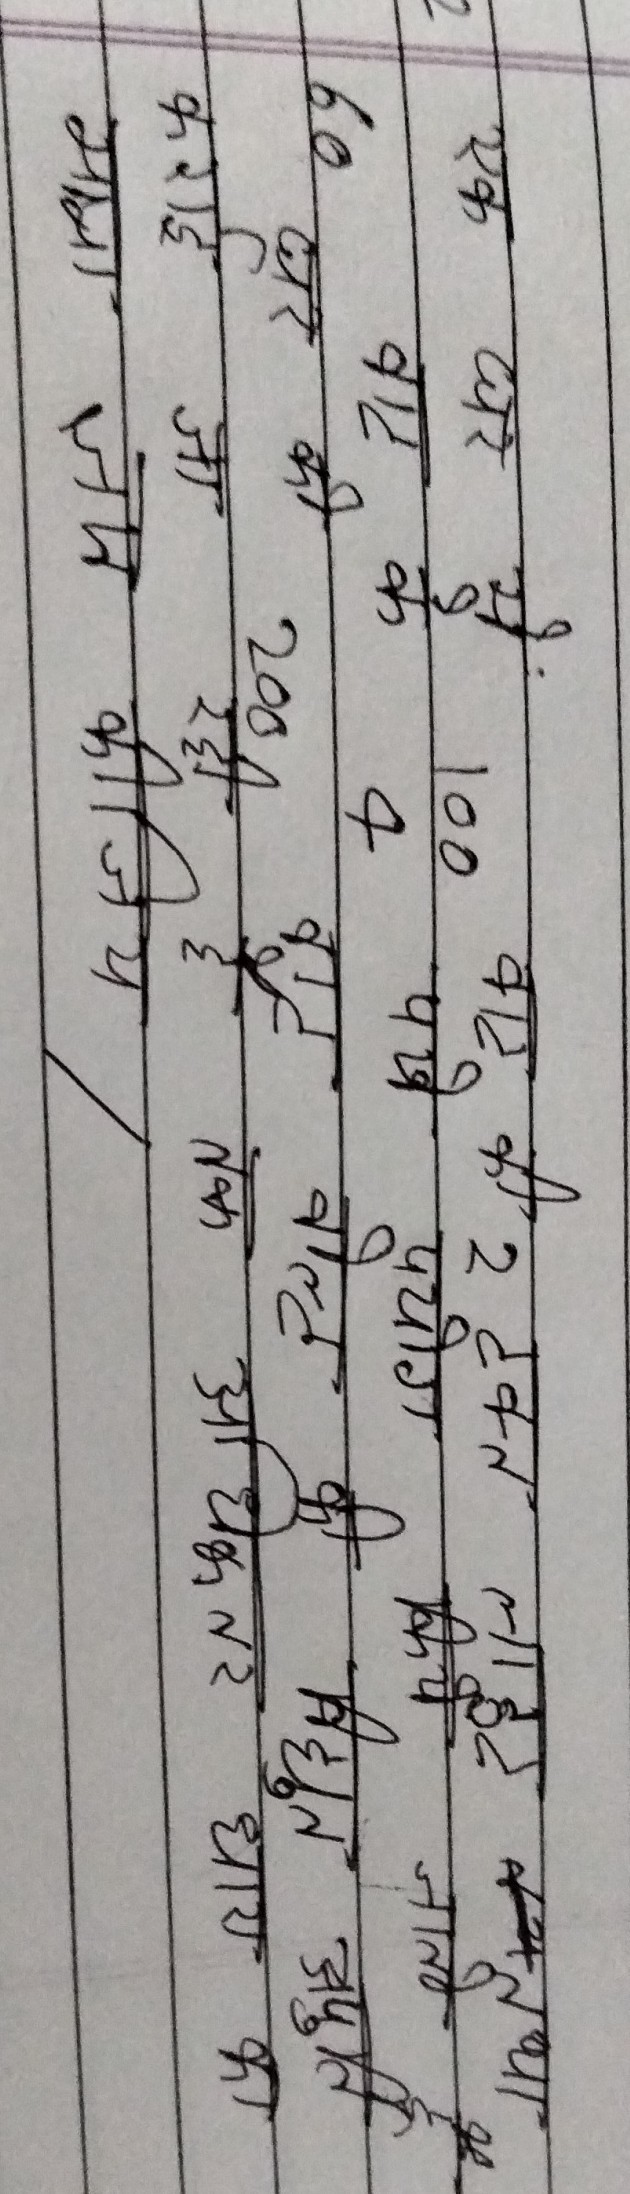 एक घर में 100 वाट की 2 ट्वन लाईट तथा
60 वाट के 4 पंखे प्रयोग किये जाते है
घर को 200 वाट वोल्ट की विद्युत आपूर्ति
कराई जा रही है तब अधिकतर धारा का
मान ज्ञात कीजिये /